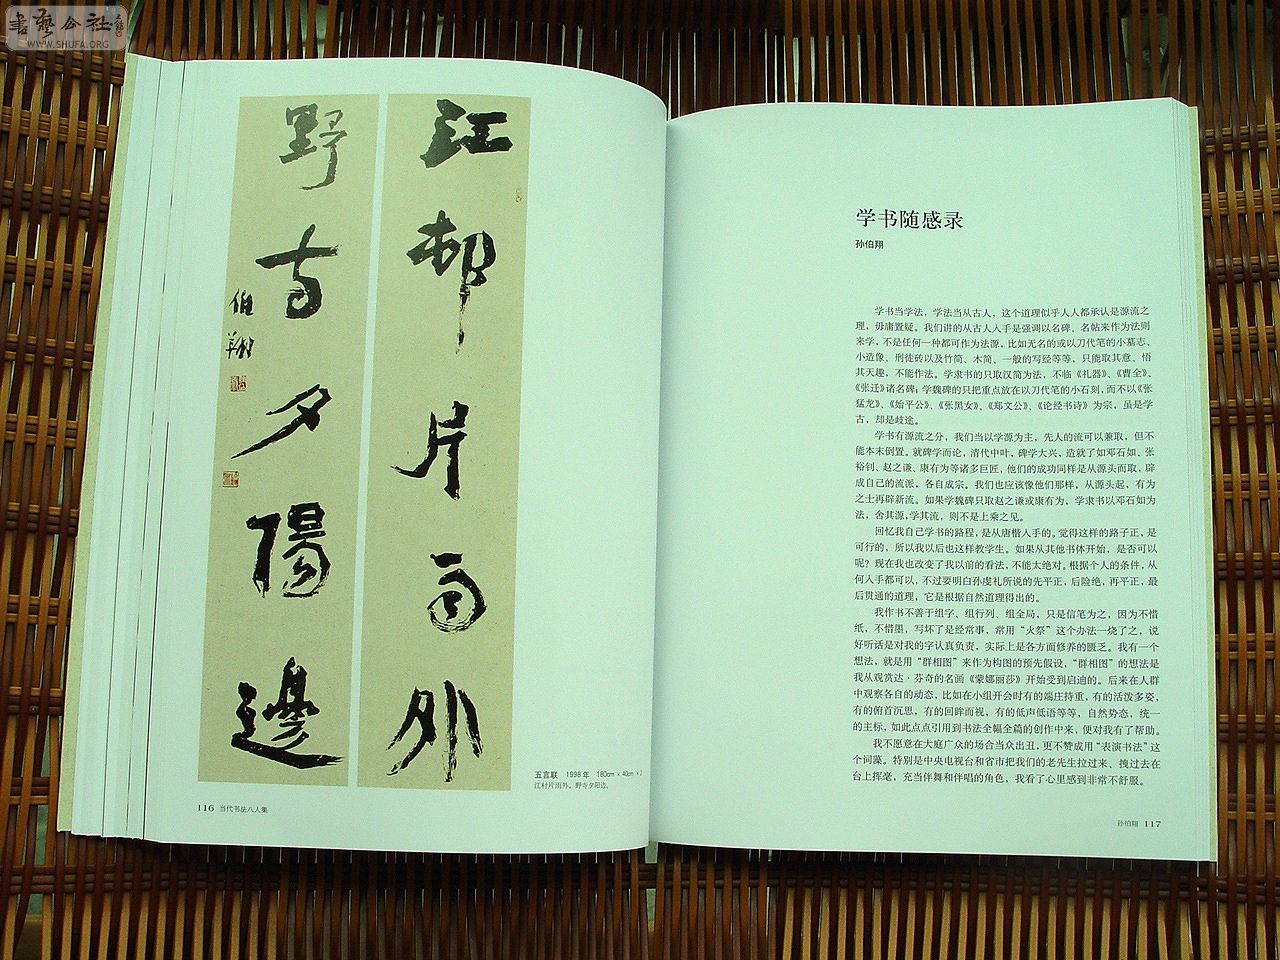 書藝公社
WWW.SHUFA.ORG
江邨片雨外
野寺夕陽邊
伯翔
五言联 1998年 180cm×40cm×2
江村片雨外，野寺夕阳边。
116 当代书法八人集
学书随感录
孙伯翔
学书当学法，学法当从古人，这个道理似乎人人都承认是源流之
理，毋庸置疑。我们讲的从古人入手是强调以名碑、名帖来作为法则
来学，不是任何一种都可作为法源，比如无名的或以刀代笔的小墓志、
小造像、刑徒砖以及竹简、木简、一般的写经等等，只能取其意、悟
其天趣，不能作法。学隶书的只取汉简为法，不临《礼器》、《曹全》、
《张迁》诸名碑；学魏碑的只把重点放在以刀代笔的小石刻，而不以《张
猛龙》、《始平公》、《张黑女》、《郑文公》、《论经书诗》为宗，虽是学
古，却是歧途。
学书有源流之分，我们当以学源为主，先人的流可以兼取，但不
能本末倒置。就碑学而论，清代中叶，碑学大兴，造就了如邓石如、张
裕钊、赵之谦、康有为等诸多巨匠，他们的成功同样是从源头而取，辟
成自己的流派，各自成宗。我们也应该像他们那样，从源头起，有为
之士再辟新流。如果学魏碑只取赵之谦或康有为，学隶书以邓石如为
法，舍其源，学其流，则不是上乘之见。
回忆我自己学书的路程，是从唐楷入手的。觉得这样的路子正，是
可行的，所以我以后也这样教学生。如果从其他书体开始，是否可以
呢？现在我也改变了我以前的看法，不能太绝对。根据个人的条件，从
何入手都可以，不过要明白孙虔礼所说的先平正，后险绝，再平正，最
后贯通的道理，它是根据自然道理得出的。
我作书不善于组字、组行列、组全局，只是信笔为之，因为不惜
纸，不惜墨，写坏了是经常事，常用“火祭”这个办法一烧了之，说
好听话是对我的字认真负责，实际上是各方面修养的匮乏。我有一个
想法，就是用“群相图”来作为构图的预先假设，“群相图”的想法是
我从观赏达·芬奇的名画《蒙娜丽莎》开始受到启迪的。后来在人群
中观察各自的动态，比如在小组开会时有的端庄持重，有的活泼多姿，
有的俯首沉思，有的回眸而视，有的低声低语等等，自然势态，统一
的主标，如此点点引用到书法全幅全篇的创作中来，便对我有了帮助。
我不愿意在大庭广众的场合当众出丑，更不赞成用“表演书法”这
个词藻。特别是中央电视台和省市把我们的老先生拉过来、拽过去在
台上挥毫，充当伴舞和伴唱的角色，我看了心里感到非常不舒服。
孙伯翔 117